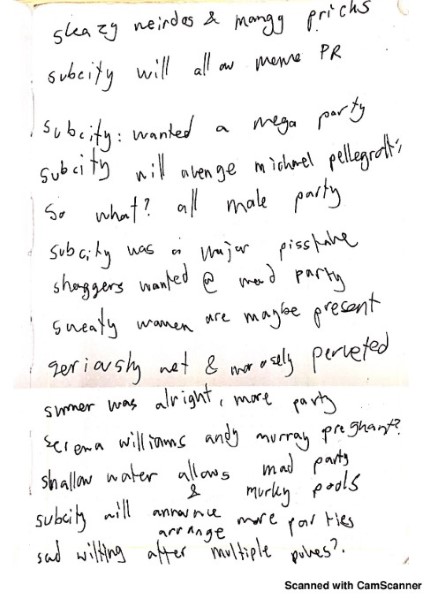 sleazy weirdos & mangy pricks
subcity will allow meme PR
subcity: wanted a mega party
subcity will avenge michael pellegrotti
So what? all male party
subcity was a major pisstake
shaggers wanted @ mad party
sweaty women are maybe present
seriously wet & morosely perveted
summer was alright, more party
serena williams andy murray pregnant?
shallow water allows mad party
& murky pools
subcity will announce more parties
arrange
sad wilting after multiple pukes?.
Scanned with CamScanner